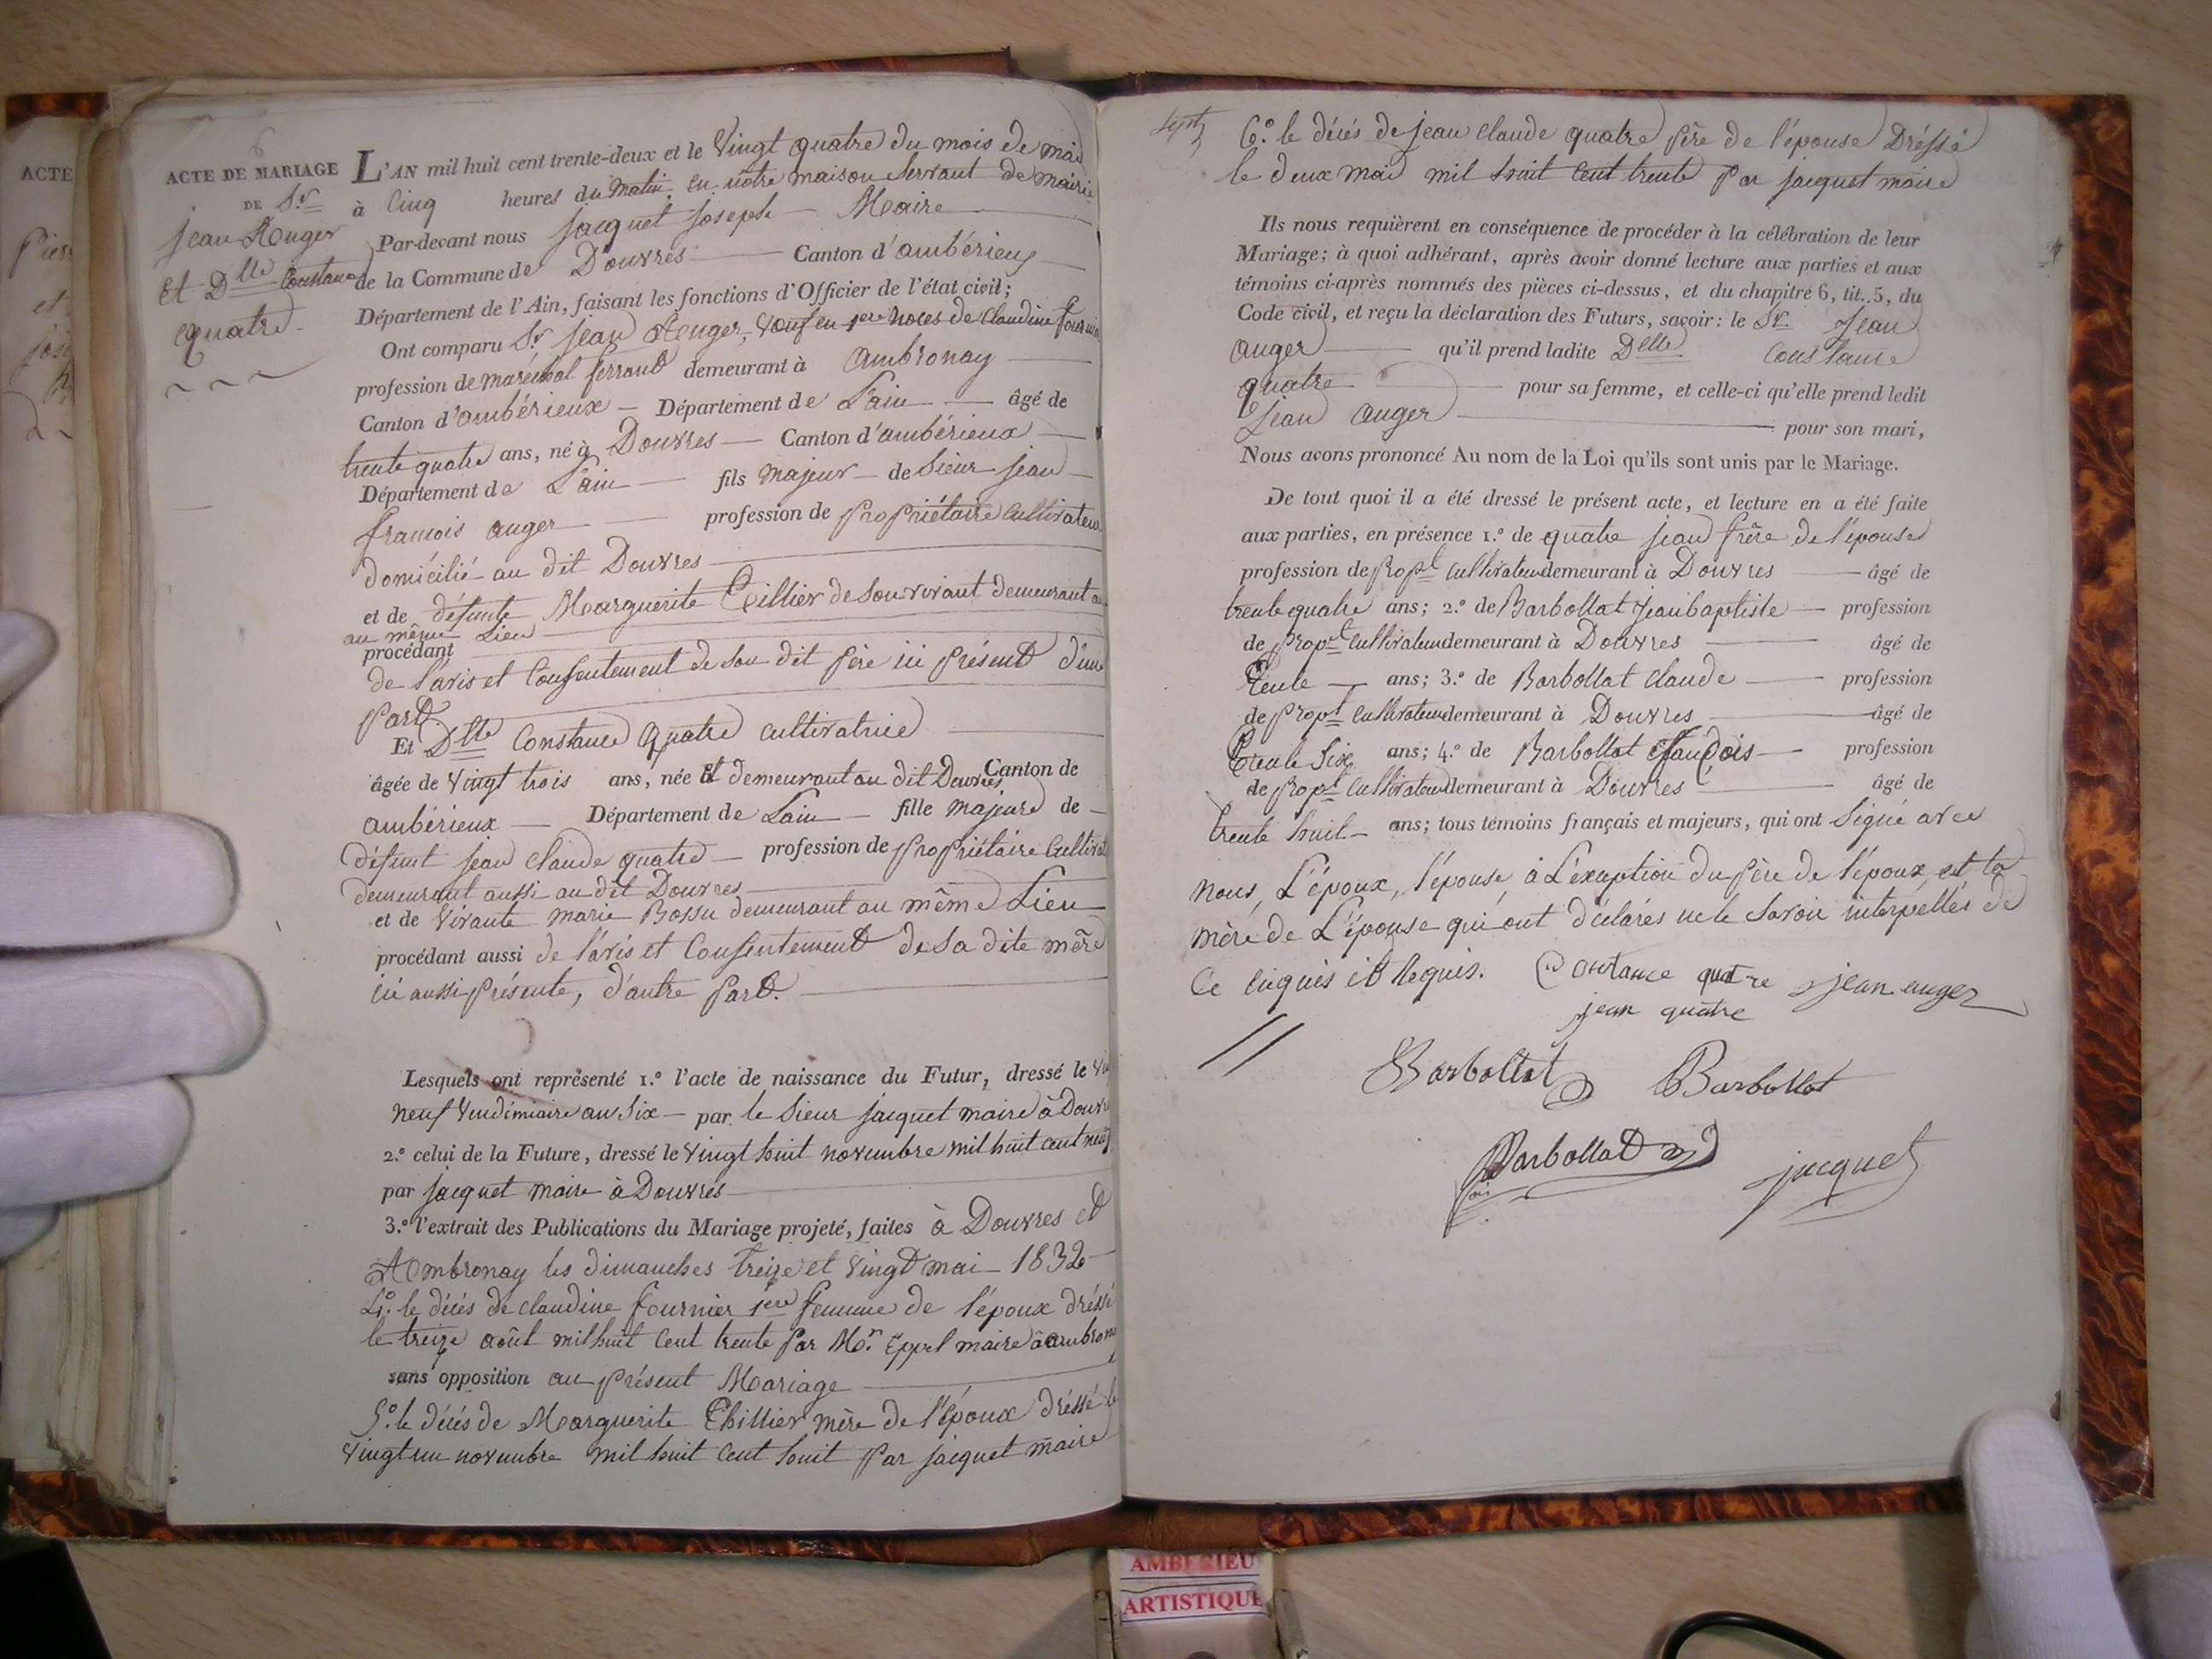 ACTE
Pier
et
6
ACTE DE MARIAGE
DE Sr
Jean Auger
Et Dlle Constance
quatre
L'AN mil huit cent trente-deux et le Vingt quatre du mois de mai
à Cinq heures du Matin, en notre maison Servant de mairie
Par-devant nous jacquet joseph Maire
de la Commune de Douvres Canton d'ambérieux
Département de l'Ain, faisant les fonctions d'Officier de l'état civil;
Ont comparu Sr Jean Auger, Veuf en 1ere Noces de Claudine fournier
profession de maréchal ferrant demeurant à ambronay
Canton d'ambérieux Département de L'ain âgé de
trente quatre ans, né à Douvres Canton d'ambérieux
Département de L'ain fils majeur de Sieur Jean
francois auger profession de propriétaire Cultivateur
domicilié au dit Douvres
et de défunte Marguerite Tillier de son vivant demeurant au
au même Lieu
procédant
de l'avis et Consentement de Son dit père ici présent d'une
part
Et Dlle Constance quatre cultivatrice
âgée de Vingt trois ans, née et demeurant au dit Douvres Canton de
ambérieux Département de Lain fille majeure de
défunt jean claude quatre profession de propriétaire Cultivat
demeurant aussi au dit Douvres
et de Vivante marie Bossu demeurant au même Lieu
procédant aussi de l'avis et Consentement de Sa dite mère
ici aussi présente, d'autre part.
Lesquels ont représenté 1.° l'acte de naissance du Futur, dressé le Vin
neuf Vendémiaire an Six par le Sieur jacquet maire à Douvres
2.° celui de la Future, dressé le Vingt huit novembre mil huit cent neuf
par jacquet maire à Douvres
3.° l'extrait des Publications du Mariage projeté, faites à Douvres et
Ambronay les dimanches treize et Vingt mai 1832
4.° le décés de claudine fournier 1ere femme de l'époux dréssé
le treize août mil huit Cent trente par Mr. Eppel maire à ambrona
sans opposition au présent Mariage
5.° le décés de Marguerite Thillier mère de l'époux dréssé le
Vingt un novembre mil huit Cent huit par jacquet maire
Sept
6.° le décés de jean claude quatre père de l'épouse Dréssé
le deux mai mil huit Cent trente par jacquet maire
Ils nous requièrent en conséquence de procéder à la célébration de leur
Mariage; à quoi adhérant, après avoir donné lecture aux parties et aux
témoins ci-après nommés des pièces ci-dessus, et du chapitre 6, tit. 5, du
Code civil, et reçu la déclaration des Futurs, savoir: le Sr Jean
auger qu'il prend ladite Delle Constance
quatre pour sa femme, et celle-ci qu'elle prend ledit
Jean auger pour son mari,
Nous avons prononcé Au nom de la Loi qu'ils sont unis par le Mariage.
De tout quoi il a été dressé le présent acte, et lecture en a été faite
aux parties, en présence 1.° de quatre jean frère de l'épouse
profession de propt cultivateur demeurant à Douvres âgé de
trente quatre ans; 2.° de Barbollat Jean baptiste profession
de propt cultivateur demeurant à Douvres âgé de
Trente ans; 3.° de Barbollat Claude profession
de propt Cultivateur demeurant à Douvres âgé de
Trente Six ans; 4.° de Barbollat francois profession
de propt Cultivateur demeurant à Douvres âgé de
trente huit ans; tous témoins français et majeurs, qui ont Signé avec
nous, L'époux, l'épouse, à L'exception du père de l'époux, et la
mère de L'épouse qui ont déclarés ne le Savoir interpellés de
Ce enquis et Requis. Constance quatre jean auger
jean quatre
Barbollat Barbollat
Barbollat
jacquet
AMBERIEU
ARTISTIQUE